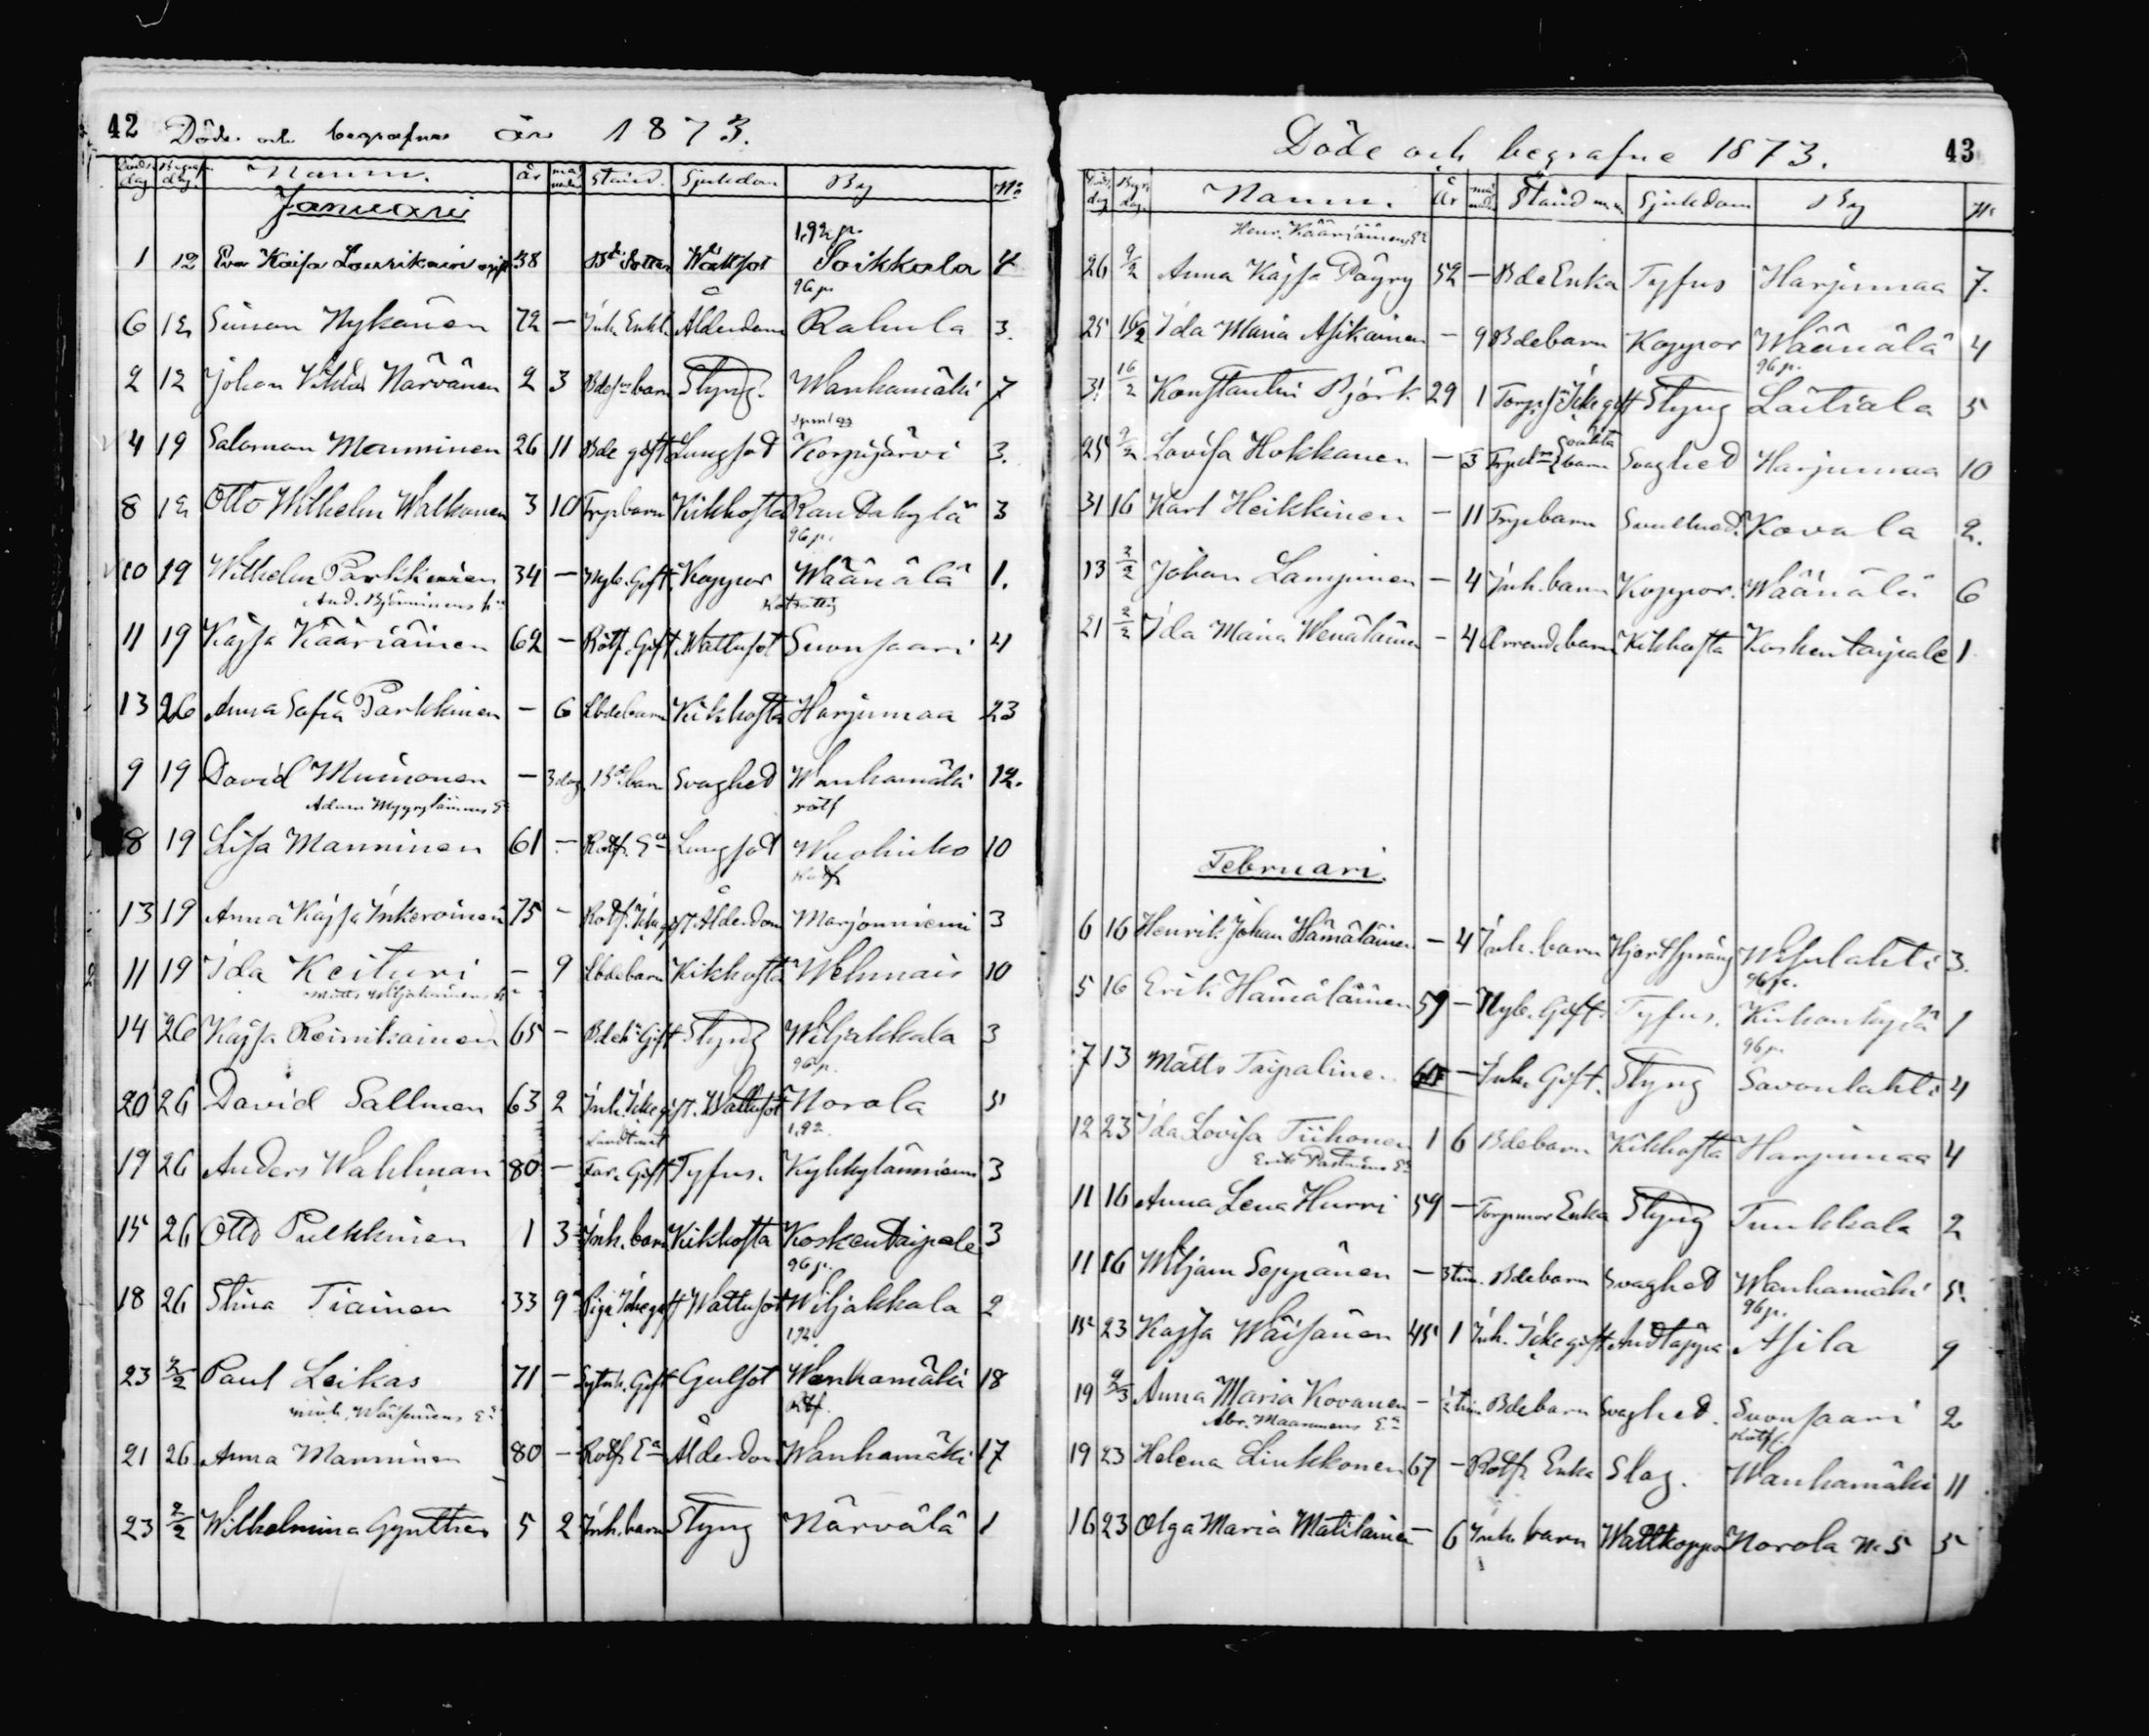 42 Döde och begrafne år 1873.
Döds dag Begrafn. dag Namn. år må nader Stånd. Sjukdom By No
Januari
1,92 p.
1 12 Eva Kaisa Laurikain ogift 38 Bde Dotter Wattsot Soikkala 4
96 p.
6 12 Simon Nykänen 72 — Inh. Enkl. Ålderdom Rahula 3.
2 12 Johan Viktor Närvänen 2 3 Bdes barn Styng. Wanhamäki 7
4 19 Salomon Manninen 26 11 Bde gift Lungsot Korpijärvi 3.
8 12 Otto Wilhelm Walkonen 3 10 Trp barn Kikhosta Randakylä 3
96 p.
10 19 Wilhelm Parkkinen 34 — Nyb. Gift. Koppor Wäänälä 1.
And. Björninens h:u
11 19 Kajsa Kääriäinen 62 — Rotf. Gift. Wattusot Suonsaari 4
13 26 Anna Sofia Parkkinen — 6 Lbdebarn Kikhosta Harjumaa 23
9 19 David Muinonen — 3 dag. Bde barn Svaghed Wanhamäki 12.
Adam Myyryläinens E:a rotf
8 19 Lisa Manninen 61 — Rotf. E:a Lungsot Wuohiko 10
Rotf
13 19 Anna Kajsa Inkeroinen 75 — Rotf. Icke gift. Ålderdom Marjonniemi 3
11 19 Ida Keituri — 9 Lbdebarn Kikhosta Wehmais 10
Matts Wiljakainens h:u
14 26 Kajsa Reinikainen 65 — Bdeh:u Gift Styng Wiljakkala 3
96 p.
20 26 David Sallman 63 2 Inh. Icke gift. Wattusot Norola 5
1,92.
19 26 Anders Wahlman 80 — Far. Gift Tyfus. Kykkylänniemi 3
15 26 Otto Pulkkinen 1 3 Inh. barn Kikhosta Koskentaipale 3
96 p.
18 26 Stina Tiainen 33 9 Piga Icke gift Wattusot Wiljakkala 2
1,92.
23 2/2 Paul Leikas 71 — Sytnk. Gift Gulsot Wanhamäki 18
Mich. Wäisänens E:a Rtf.
21 26 Anna Manninen 80 — Rotf. E:a Ålderdom Wanhamäki 17
23 2/2 Wilhelmina Gynther 5 2 Inh. barn Styng Närvälä 1
Döde och begrafne 1873. 43
Döds dag Begr. dag. Namn. År må nader Stånd m m Sjukdom By No
Henr. Kääriäinens E:a
26 9/2 Anna Kajsa Päyry 52 — Bde Enka Tyfus Harjumaa 7.
25 16/2 Ida Maria Asikainen — 9 Bdebarn Koppor Wäänälä 4
96 p.
31 16/2 Konstantin Björk 29 1 Torps. Icke gift Styng Laitiala 5
25 9/2 Lovisa Hokkanen — 3 barn Svaghed Harjumaa 10
31 16 Karl Heikkinen — 11 Trpebarn Kovala 2.
13 2/2 Johan Lampinen — 4 Inh. barn Koppor. Wäänälä 6
21 2/2 Ida Maria Wenäläinen — 4 Arrend. barn Kikhosta Koskentaipale 1
Februari.
6 16 Henrik Johan Hämäläinen — 4 Inh. barn Hjertsprång Wesulahti 3.
96 p.
5 16 Erik Hämäläinen 59 — Nyb. Gift. Tyfus. Kirkonkylä 1
96 p.
7 13 Matts Taipalinen — Inh. Gift. Styng Savonlahti 4
12 23 Ida Lovisa Tiihonen 1 6 Bdebarn Kikhosta Harjumaa 4
11 16 Anna Lena Hurri 59 — Torpmor Enka Styng Tuukkala 2
11 16 Wiljam Seppänen — 3 tim. Bdebarn Svaghed Wanhamäki 5.
96 p.
15 23 Kajsa Wäisänen 45 1 Inh. Icke gift Andtäppa Asila 9
19 2/3 Anna Maria Kovanen — 1/2 tim Bdebarn Svaghed. Suonsaari 2
Abr. Maaranens E:a Rotf.
19 23 Helena Liukkonen 67 — Rotf. Enka Slag. Wanhamäki 11
16 23 Olga Maria Matilainen — 6 Inh. barn Wattkoppor Norola No 5 5